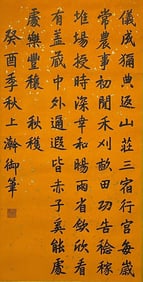 儀成獮典返山莊三宿行宮每歲
常農事初聞禾刈畝田功告稔稼
堆場授時深幸和暘雨省歛欣看
有蓋藏中外逼遐皆赤子奚能處
處樂豐穰　秋穫
癸酉季秋上澣御筆